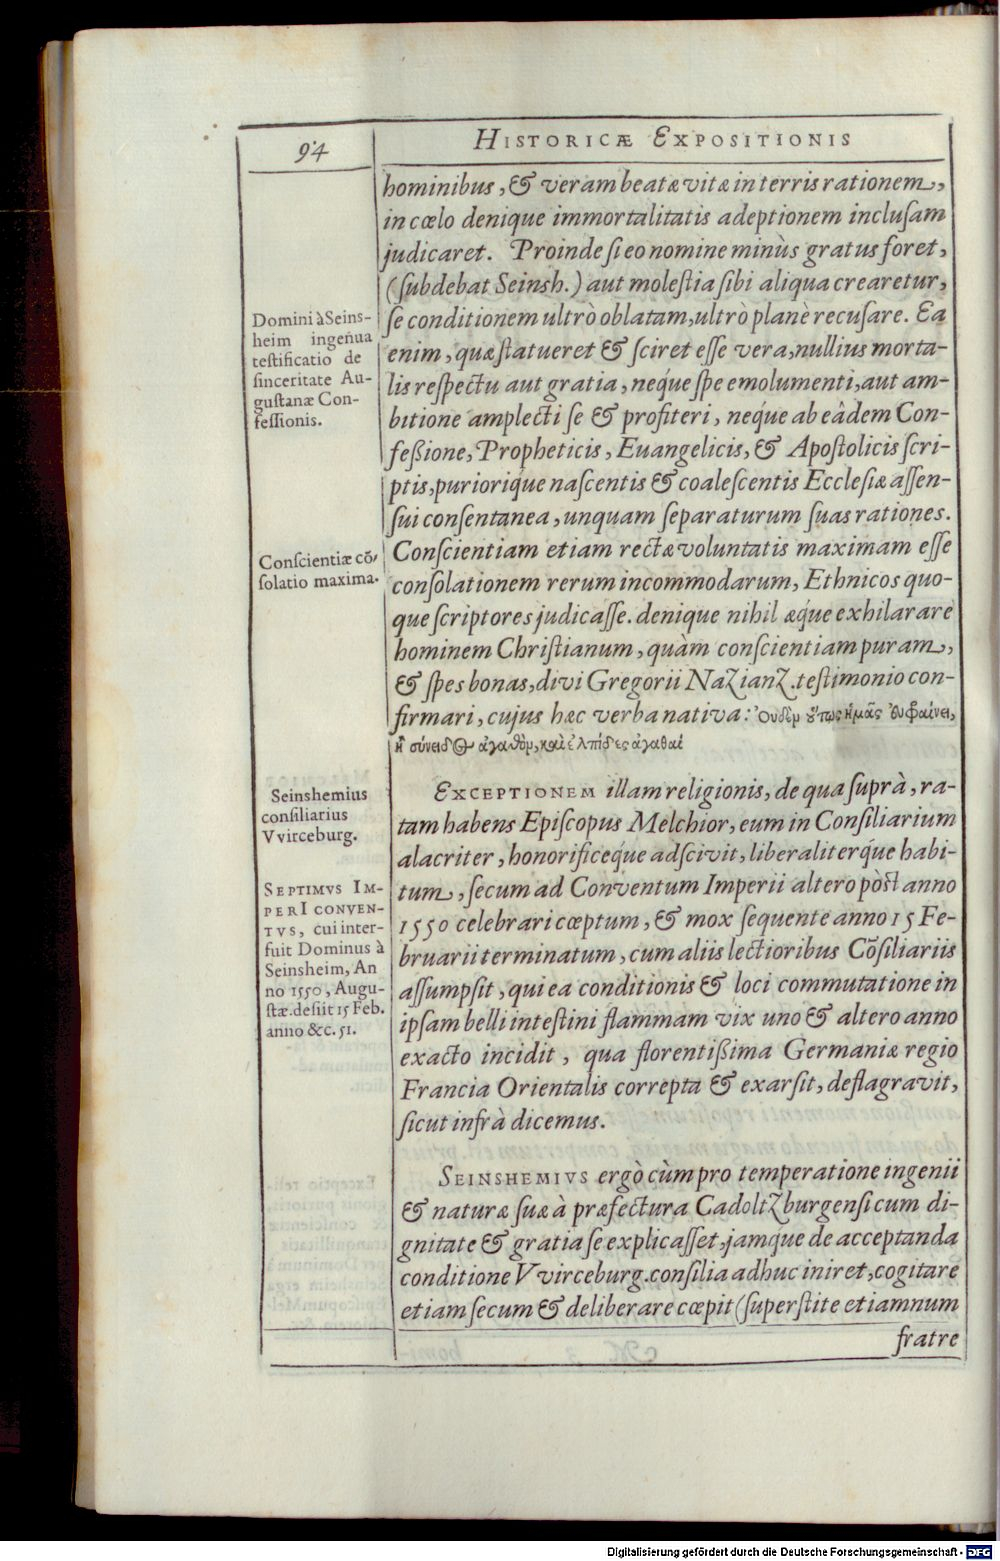 94
HISTORICÆ EXPOSITIONIS
hominibus, & veram beatæ vitæ in terris rationem,
in cœlo denique immortalitatis adeptionem inclusam
judicaret. Proinde si eo nomine minùs gratus foret,
(subdebat Seinsh.) aut molestia sibi aliqua crearetur,
se conditionem ultrò oblatam, ultrò planè recusare. Ea
enim, quæ statueret & sciret esse vera, nullius morta-
lis respectu aut gratia, neq́ue spe emolumenti, aut am-
bitione amplecti se & profiteri, neq́ue ab eâdem Con-
feßione, Propheticis, Euangelicis, & Apostolicis scri-
ptis, purioriq́ue nascentis & coalescentis Ecclesiæ assen-
sui consentanea, unquam separaturum suas rationes.
Conscientiam etiam rectæ voluntatis maximam esse
consolationem rerum incommodarum, Ethnicos quo-
que scriptores judicasse. denique nihil æq́ue exhilarare
hominem Christianum, quàm conscientiam puram,
& spes bonas, divi Gregorii Nazianz. testimonio con-
firmari, cujus hæc verba nativa: Οὐδὲν οὕτως ἡμᾶς εὐφραίνει,
ἢ σύνειδος ἀγαθὸν, καὶ ἐλπίδες ἀγαθαί
EXCEPTIONEM illam religionis, de qua suprà, ra-
tam habens Episcopus Melchior, eum in Consiliarium
alacriter, honorificeq́ue adscivit, liberaliterq́ue habi-
tum, secum ad Conventum Imperii altero pòst anno
1550 celebrari cœptum, & mox sequente anno 15 Fe-
bruarii terminatum, cum aliis lectioribus Cõsiliariis
assumpsit, qui ea conditionis & loci commutatione in
ipsam belli intestini flammam vix uno & altero anno
exacto incidit, qua florentißima Germaniæ regio
Francia Orientalis correpta & exarsit, deflagravit,
sicut infrà dicemus.
SEINSHEMIVS ergò cùm pro temperatione ingenii
& naturæ suæ à præfectura Cadoltzburgensi cum di-
gnitate & gratia se explicasset, jamque de acceptanda
conditione Vvirceburg. consilia adhuc iniret, cogitare
etiam secum & deliberare cœpit (superstite etiamnum
fratre
Domini à Seins-
heim ingenua
testificatio de
sinceritate Au-
gustanæ Con-
fessionis.
Conscientiæ cõ-
solatio maxima.
Seinshemius
consiliarius
Vvirceburg.
SEPTIMVS IM-
PERI CONVEN-
TVS, cui inter-
fuit Dominus à
Seinsheim, An
no 1550, Augu-
stæ. desiit 15 Feb.
anno &c. 51.
Digitalisierung gefördert durch die Deutsche Forschungsgemeinschaft - DFG